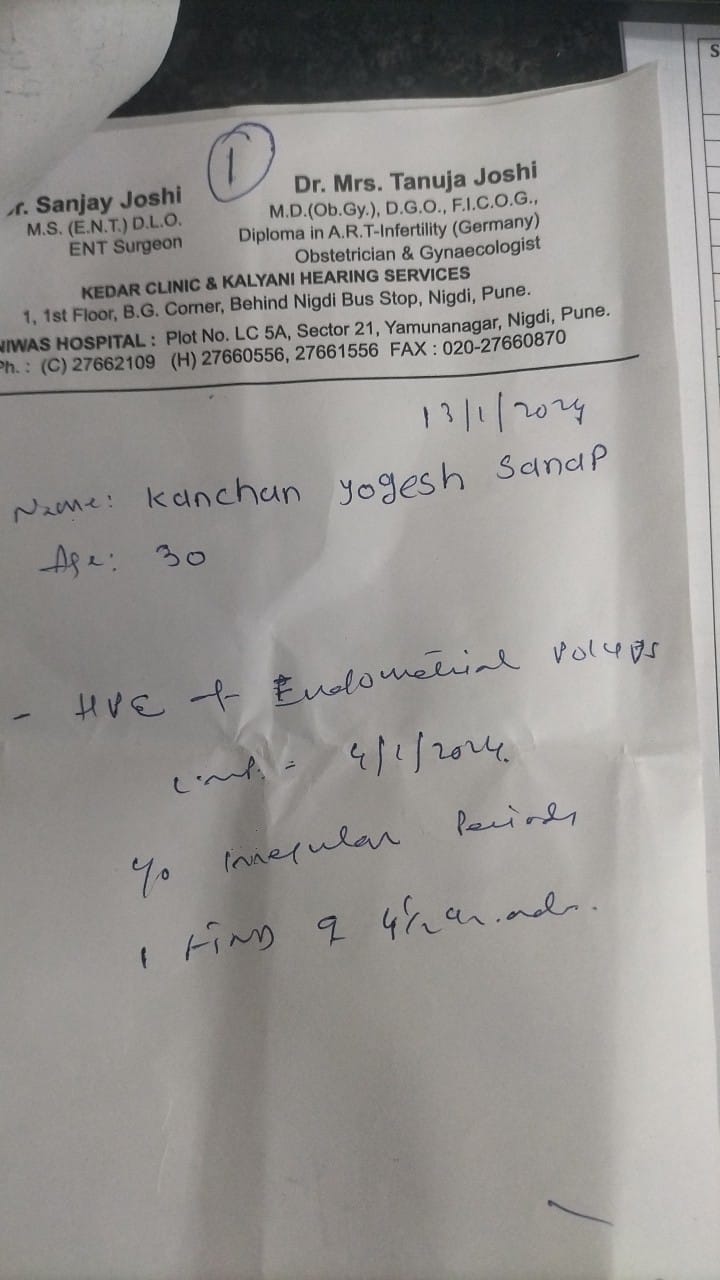 1
r. Sanjay Joshi
M.S. (E.N.T.) D.L.O.
ENT Surgeon
Dr. Mrs. Tanuja Joshi
M.D.(Ob.Gy.), D.G.O., F.I.C.O.G.,
Diploma in A.R.T-Infertility (Germany)
Obstetrician & Gynaecologist
KEDAR CLINIC & KALYANI HEARING SERVICES
1, 1st Floor, B.G. Corner, Behind Nigdi Bus Stop, Nigdi, Pune.
NIWAS HOSPITAL : Plot No. LC 5A, Sector 21, Yamunanagar, Nigdi, Pune.
Ph. : (C) 27662109 (H) 27660556, 27661556 FAX : 020-27660870
13/1/2024
Name: Kanchan Yogesh Sanap
Age: 30
- Endometrial Polyps
4/1/2024.
Irregular Periods
1 FTND
S